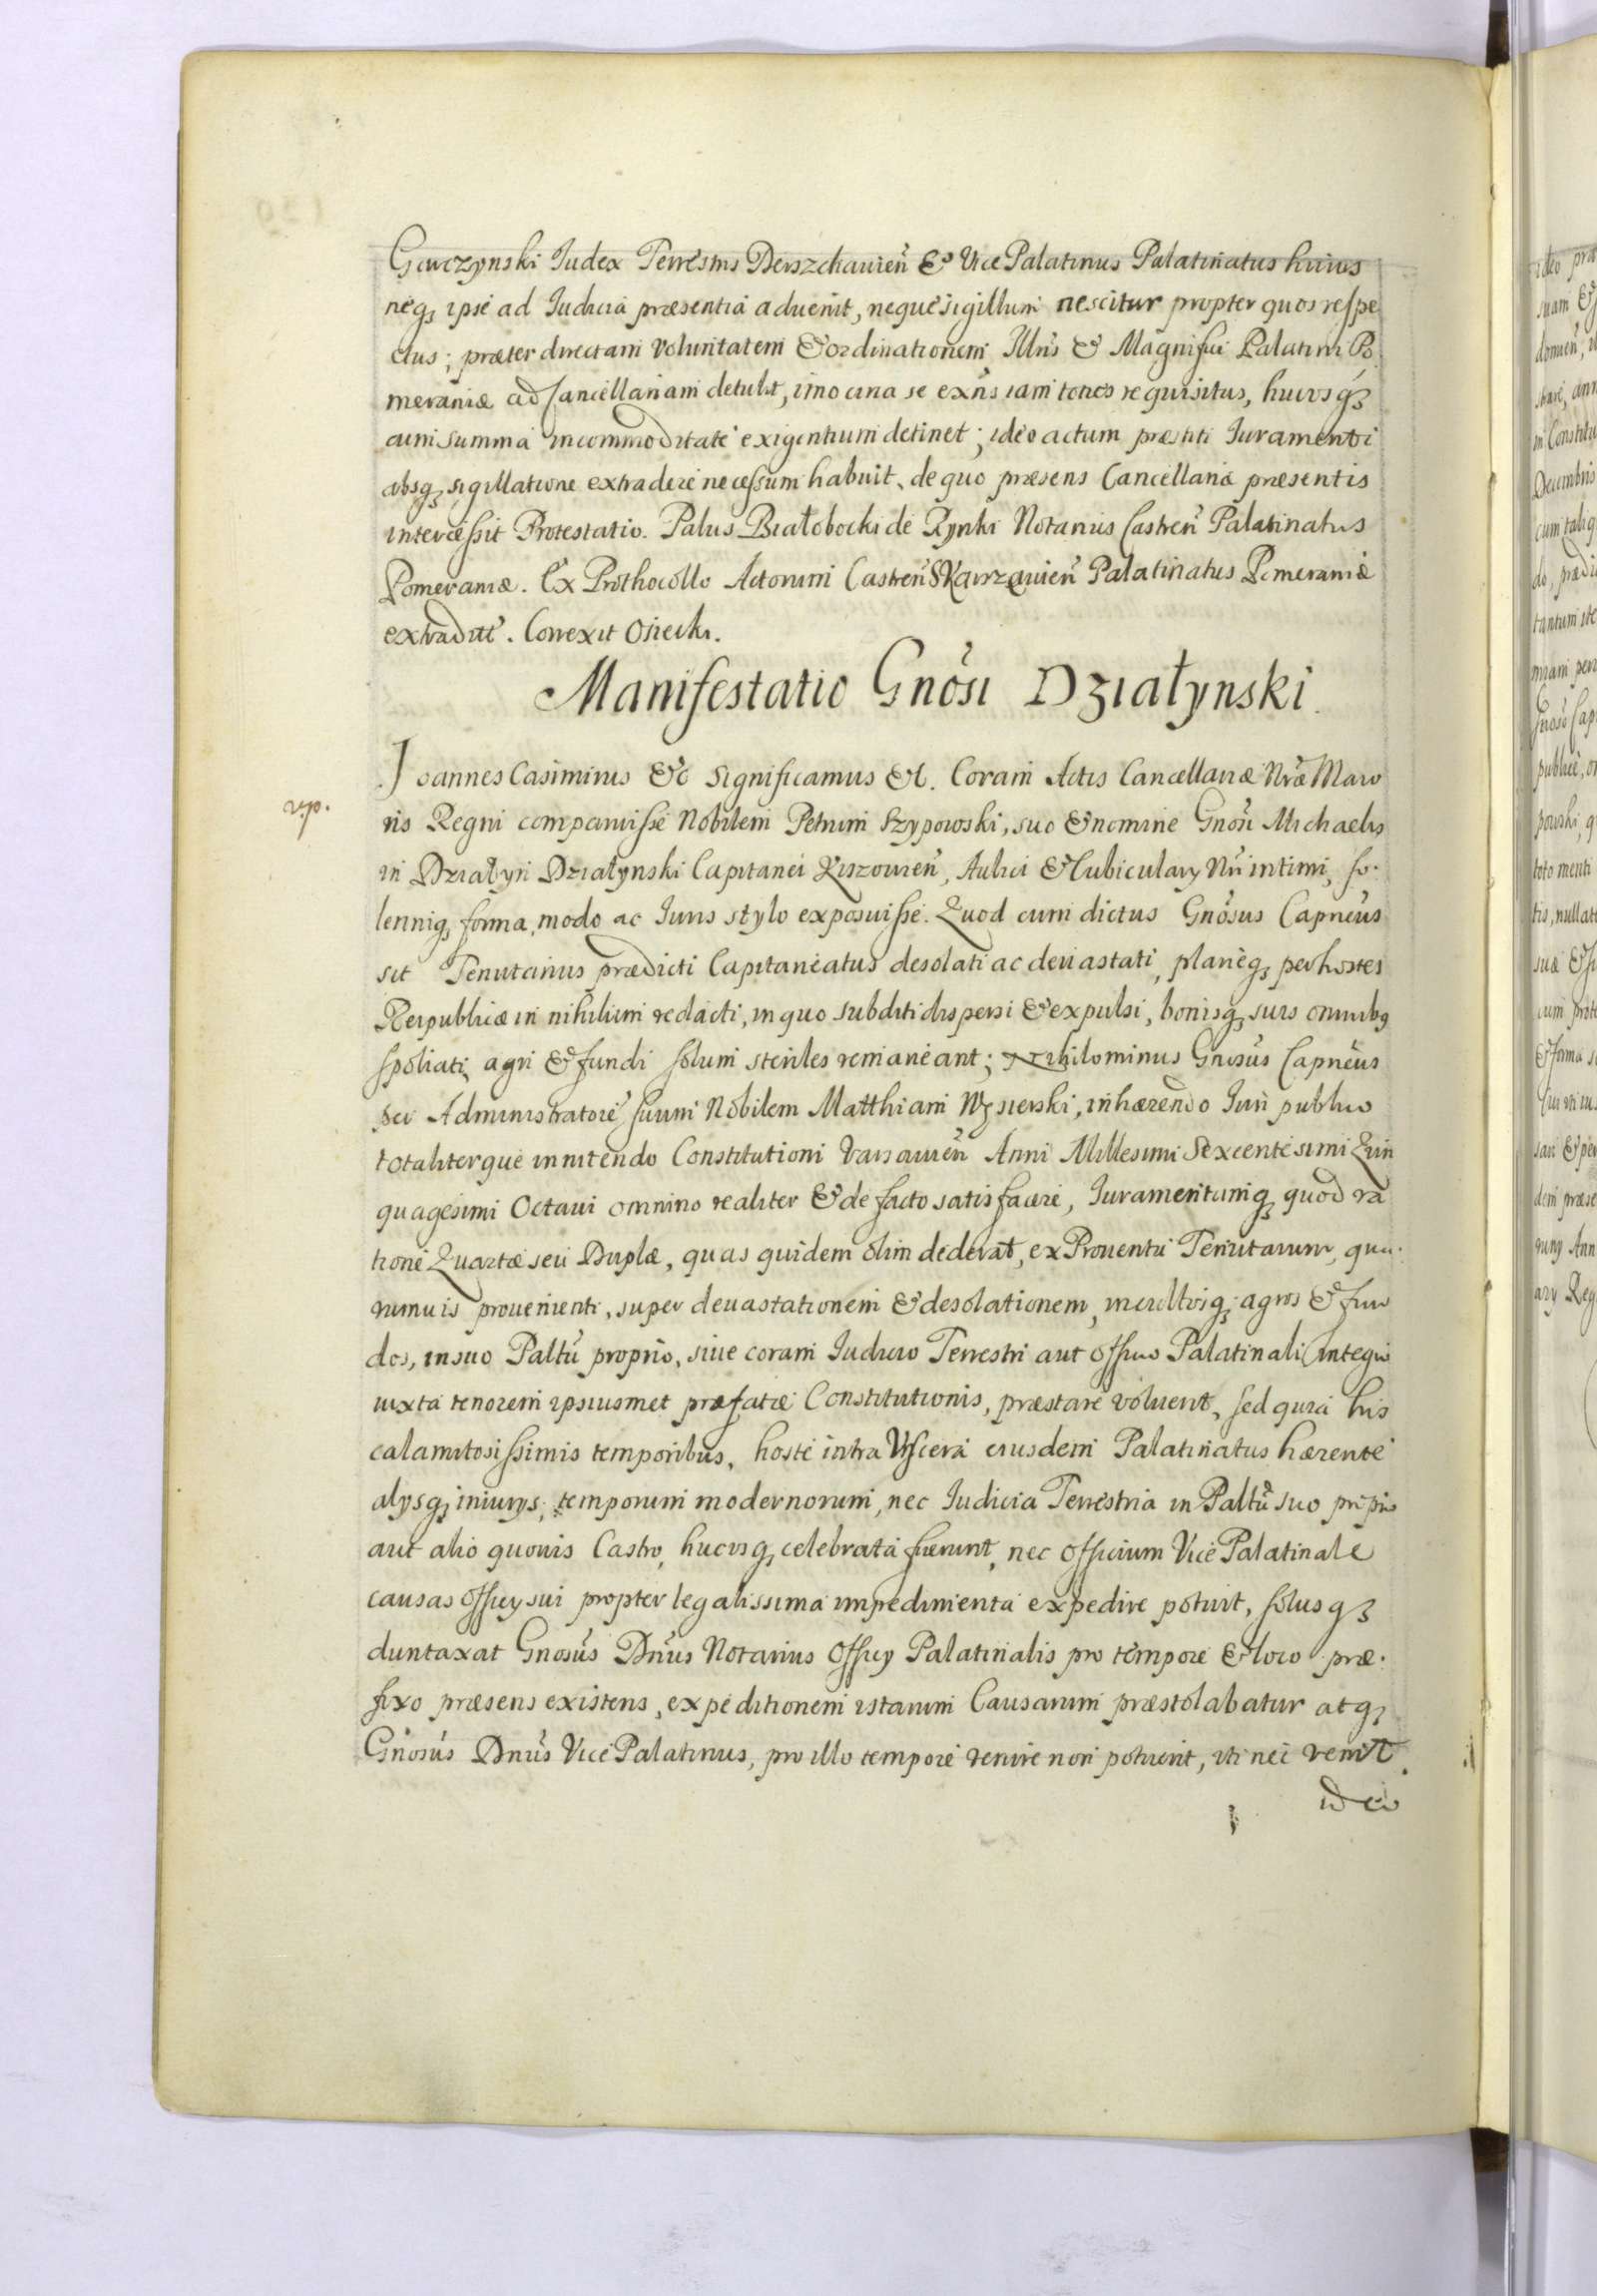 Garczynski Iudex Terrestris Derszchauien̄ & Vice Palatinus Palatinatus huius
neq₃ ipse ad Iudicia præsentia aduenit, neque sigillum nescitur propter quos respe
ctus; præter directam voluntatem & ordinationem Illris & Magnifici Palatini Po
meraniæ ad Cancellariam detulit, imo una se exn̄s iam toties requisitus, hucusq₃
cum summa incommoditate exigentium detinet; ideo actum præstiti Iuramenti
absq₃ sigillatione extradere necessum habuit, de quo præsens Cancellariæ præsentis
intercessit Protestatio. Palus Białobocki de Rynki Notarius Castren̄ Palatinatus
Pomeraniæ. Ex Prothocollo Actorum Castren̄ Skarzauien̄ Palatinatus Pomeraniæ
extradit̄. Correxit Osiecki.
Manifestatio Gnōsi Działynski.
Joannes Casimirus &c Significamus &c. Coram Actis Cancellariæ Nr̄æ Maio
v.p.
ris Regni comparuisse Nobilem Petrum Szypowski, suo & nomine Gnōsi Michaelis
in Działyn Działynski Capitanei Kiszouien̄, Aulici & Cubiculary Nr̄i intimi, so.
lenniq₃ forma, modo ac Iuris stylo exposuisse. Quod cum dictus Gnōsus Capnēus
sit Tenutarius prædicti Capitaneatus desolati ac deuastati, planeq₃ per hostes
Reipublicæ in nihilum redacti, in quo subditi dispersi & expulsi, bonisq₃ suis omnibq
spoliati, agri & fundi solum steriles remaneant; Nihilominus Gnosūs Capnēus
per Administratorē suum Nobilem Matthiam Węsierski, inhærendo Iuri publico
totaliterque innitendo Constitutioni Varsauien̄ Anni Millesimi Sexcentesimi Quin
quagesimi Octaui omnino realiter & de facto satisfacere, Iuramentumq₃ quod ra
tione Quartæ seu Duplæ, quas quidem olim dederat, ex Prouentu Tenutarum, qua.
rumuis prouenienti, super deuastationem & desolationem, incultosq₃ agros & fun
dos, in suo Paltū proprio, siue coram Iudicio Terrestri aut Officio Palatinali integro
iuxta tenorem ipsiusmet præfatæ Constitutionis, præstare voluerit, sed quia his
calamitosissimis temporibus, hoste intra Viscera eiusdem Palatinatus hærente
alysq₃ iniurys, temporum modernorum, nec Iudicia Terrestria in Paltū suo proprio
aut alio quouis Castro, hucusq₃ celebrata fuerunt, nec Officium Vice Palatinale
causas Officy sui propter legalissima impedimenta expedire potuit, solusq₃
duntaxat Gnosūs Dn̄us Notarius Officy Palatinalis pro tempore & loco præ.
fixo præsens existens, expeditionem istarum Causarum præstolabatur atq₃
Gnosūs Dnūs Vice Palatinus, pro illo tempore venire non potuerit, uti nec venit.
ideo